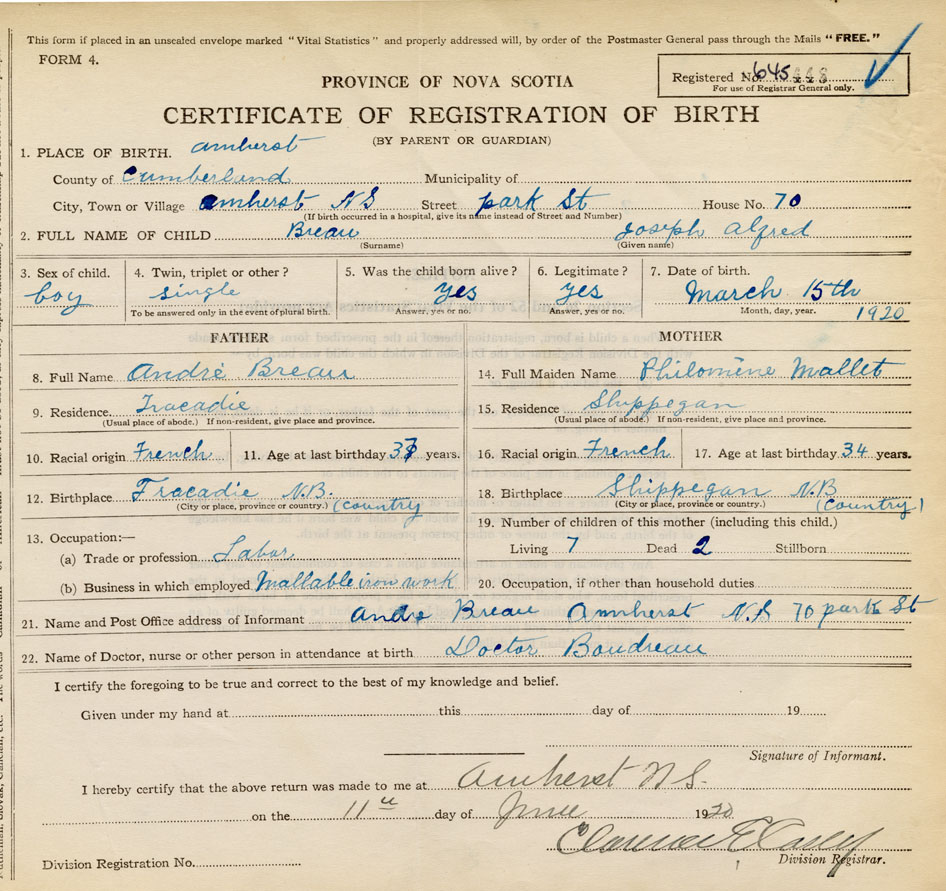 This form if placed in an unsealed envelope marked "Vital Statistics" and properly addressed will, by order of the Postmaster General pass through the Mails "FREE."
FORM 4.
Registered No. 645
For use of Registrar General only.
PROVINCE OF NOVA SCOTIA
CERTIFICATE OF REGISTRATION OF BIRTH
(BY PARENT OR GUARDIAN)
1. PLACE OF BIRTH. amherst
County of Cumberland Municipality of
City, Town or Village amherst NS Street park St House No. 70
(If birth occurred in a hospital, give its name instead of Street and Number)
2. FULL NAME OF CHILD Breau Joseph Alfred
(Surname) (Given name)
3. Sex of child. 4. Twin, triplet or other? 5. Was the child born alive? 6. Legitimate? 7. Date of birth.
boy single yes yes March 15th
To be answered only in the event of plural birth. Answer, yes or no. Answer, yes or no. Month, day, year. 1920
FATHER MOTHER
8. Full Name André Breau 14. Full Maiden Name Philomène Mallet
9. Residence Tracadie 15. Residence Shippegan
(Usual place of abode.) If non-resident, give place and province. (Usual place of abode.) If non-resident, give place and province.
10. Racial origin French 11. Age at last birthday 37 years. 16. Racial origin French 17. Age at last birthday 34 years.
12. Birthplace Tracadie N.B. (country 18. Birthplace Shippegan N.B (country)
(City or place, province or country.) (City or place, province or country.)
13. Occupation:— 19. Number of children of this mother (including this child.)
(a) Trade or profession Labor Living 7 Dead 2 Stillborn
(b) Business in which employed Mallable iron work 20. Occupation, if other than household duties
21. Name and Post Office address of Informant Andre Breau Amherst N.S 70 park St
22. Name of Doctor, nurse or other person in attendance at birth Doctor Boudreau
I certify the foregoing to be true and correct to the best of my knowledge and belief.
Given under my hand at this day of 19
Signature of Informant.
I hereby certify that the above return was made to me at Amherst N S.
on the 11th day of June 1920
Division Registration No. Division Registrar.